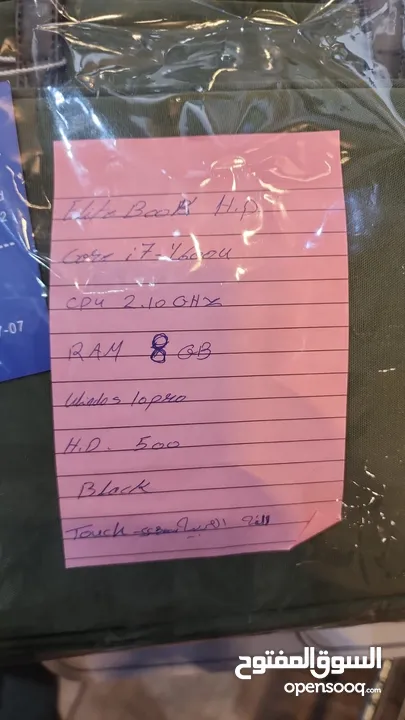 Elite Book H.p
Core i7-4600u
CPU 2.10 GHz
RAM 8 GB
Windos 10pro
H.D. 500
Black
Touch
7-07
السوق المفتوح
opensooq.com